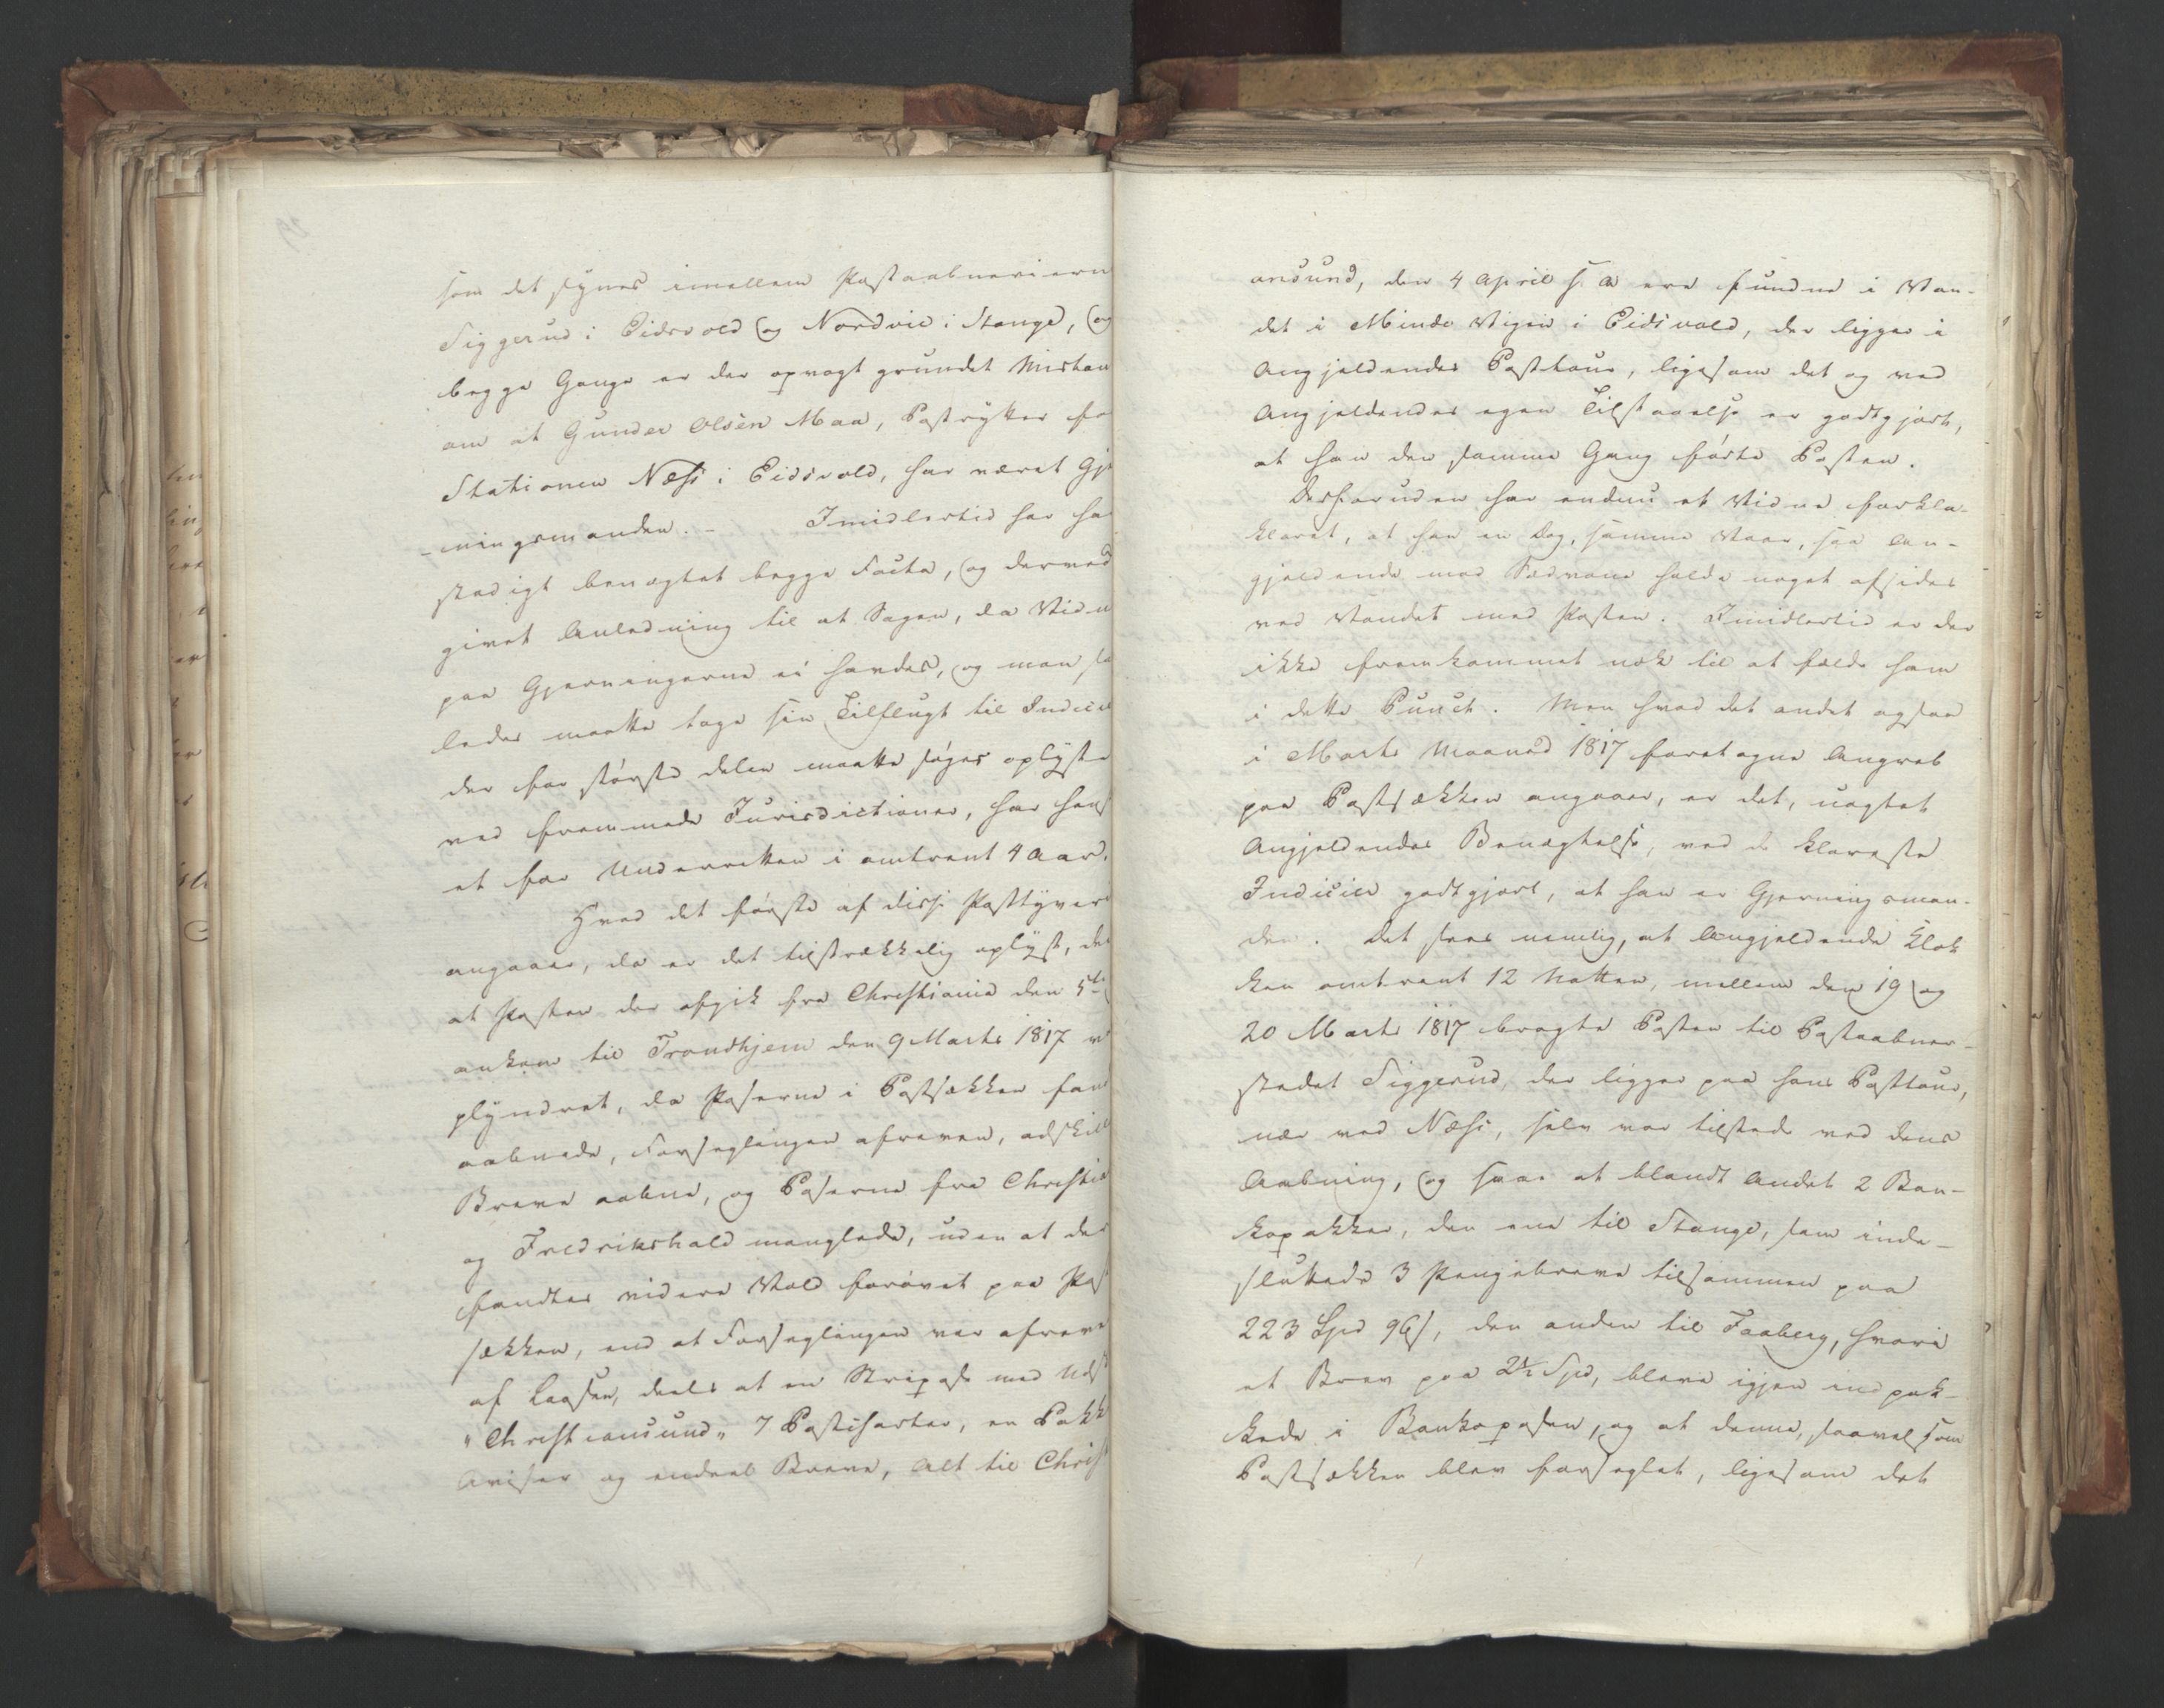 som det synes imellem Postaabneriern
Siggerud i Eidsvold og Nordvie i Stange, og
begge Gange er der opvagt grundet Mistan
om at Gunder Olsen Maa, Postrytter fo
Stationen Næss i Eidsvold, har været Gj
-ningsmanden. - Imidlertid har ha
stadigt benægtet begge Facta, og derved
givet Anledning til at Sagen, da Vidn
paa Gjerningerne ei havdes, og man sa
ledes maatte tage sin Tilflugt til Indici
der for største delen maatte søges oplyste
ved fremmede Jurisdictioner, har hens
et for Underretten i omtrent 4 Aar.
Hvad det første af disse Posttyveri
angaaer, da er det tilstrækkelig oplyst, de
at Posten der afgik fra Christiania den 5te
ankom til Trondhjem den 9 Marts 1817
plyndret, da Poserne i Postsækken fan
aabnede, Forseglingen afreven, adskill
Breve aabne, og Poserne fra Christia
og Fredrikshald manglede, uden at der
fandtes videre Vold forøvet paa Post
sækken, end at Forseglingen var afreve
af Laasen, deels at en Skripose med Uds
"Christiansund" 7 Postcharter, en Pakk
Aviser og endeel Breve, alt til Christ
ansund, den 4 April s. A ere fundne i Van-
det i Minde Vigen i Eidsvold, der ligger i
Angjeldendes Posttour, ligesom det og ved
Angjeldendes egen Tilstaaelse er godtgjort,
at han den samme Gang førte Posten.
Desforuden har endnu et Vidne forkla-
klaret, at han en Dag, samme Vaar, saa An-
gjeldende mod Sædvane holde noget afsides
ved Vandet med Posten. Imidlertid er der
ikke fremkommet nok til at fælde ham
i dette Punct. Men hvad det andet ogsaa
i Marts Maaned 1817 foretagne Angreb
paa Postsækken angaaer, er det, uagtet
Angjeldendes Benægtelse, ved de klareste
Indicier godtgjort, at han er Gjerningsman-
den. Det sees nemlig, at Angjeldende Klok
ken omtrent 12 Natten, mellem den 19 og
20 Marts 1817 bragte Posten til Postaabner-
stedet Siggerud, der ligger paa hans Posttour,
nær ved Næss, selv var tilstede ved dens
Aabning, og saae at blandt Andet 2 Ban-
kopakker, den ene til Stange, som inde-
sluttede 3 Pengebreve tilsammen paa
223 Spd 96 s, den anden til Faaberg, hvori
et Brev paa 2½ Spd, bleve igjen indpak-
kede i Bankoposen, og at denne, saavelsom
Postsækken blev forseglet, ligesom det